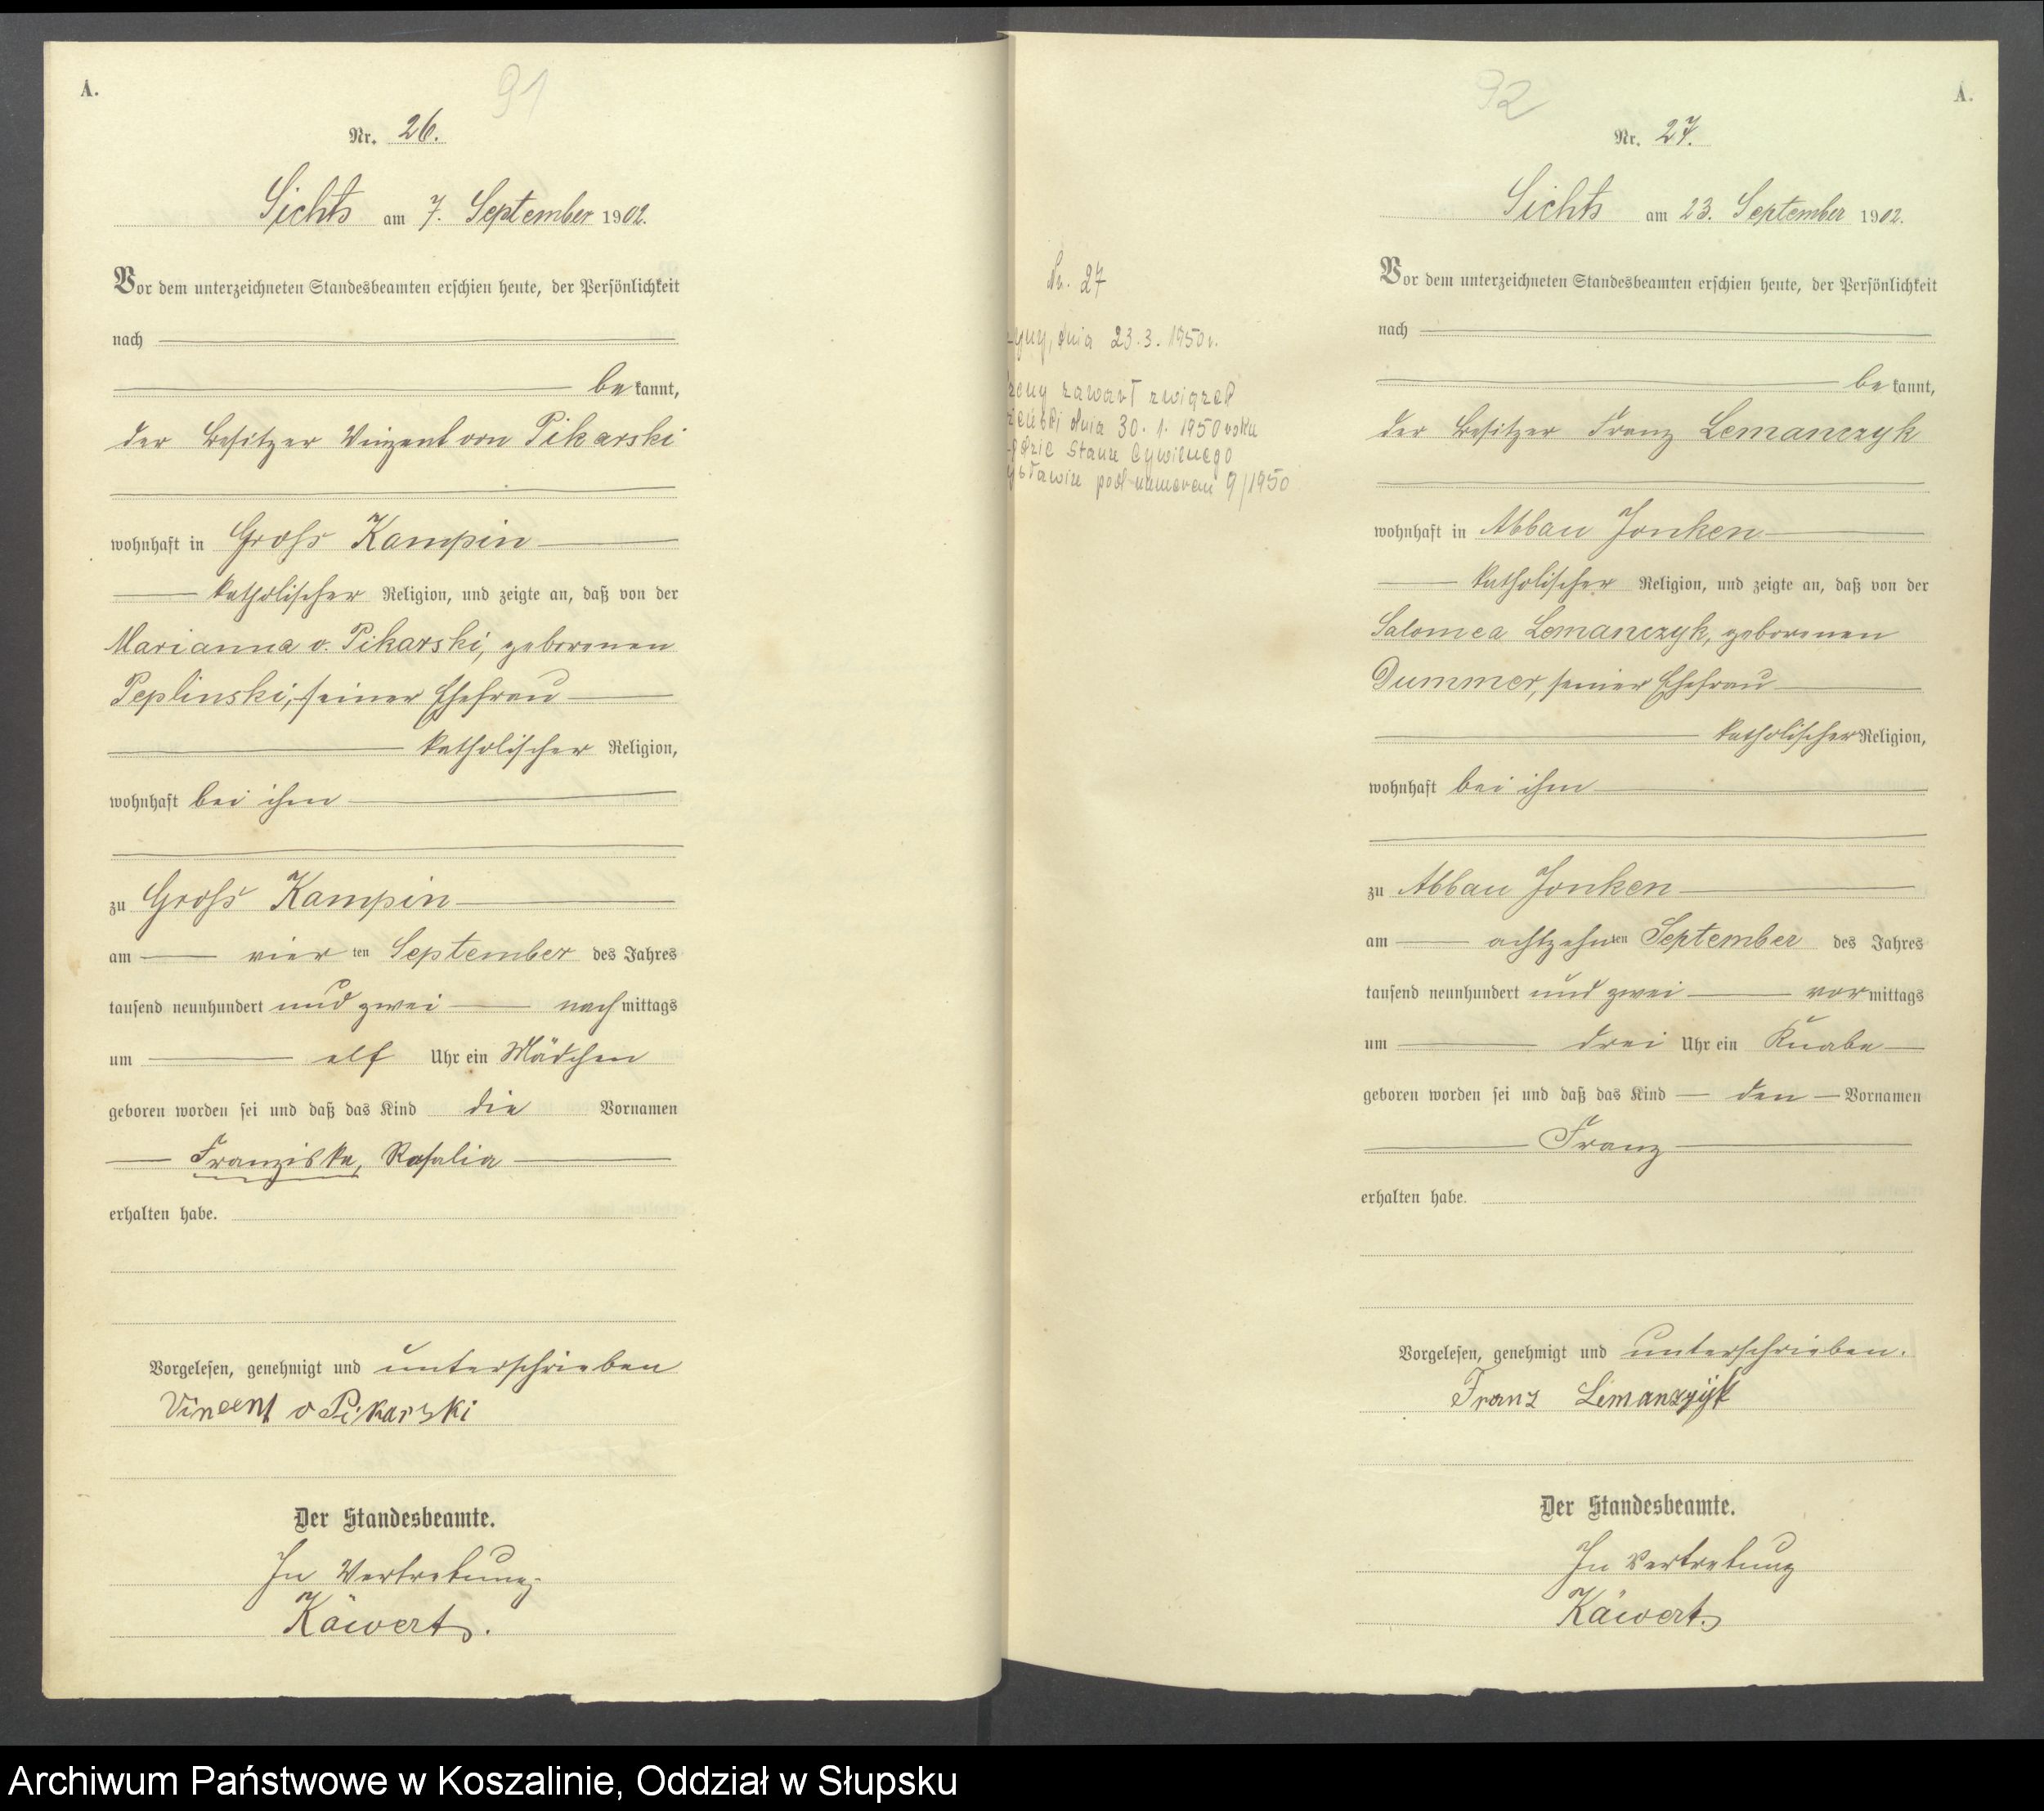 A.
91
Nr. 26.
Sichts am 7. September 1902.
Vor dem unterzeichneten Standesbeamten erschien heute, der Persönlichkeit
nach
be kannt,
der Besitzer Vinzent von Pikarski
wohnhaft in Groß Kampin
katholischer Religion, und zeigte an, daß von der
Marianna v. Pikarski, geborenen
Peplinski, seiner Ehefrau
katholischer Religion,
wohnhaft bei ihm
zu Groß Kampin
am vier ten September des Jahres
tausend neunhundert und zwei nach mittags
um elf Uhr ein Mädchen
geboren worden sei und daß das Kind die Vornamen
Franziska, Rosalia
erhalten habe.
Vorgelesen, genehmigt und unterschrieben
Vincent v Pikarski
Der Standesbeamte.
In Vertretung
Käwert.
92
A.
Nr. 27.
Sichts am 23. September 1902.
Vor dem unterzeichneten Standesbeamten erschien heute, der Persönlichkeit
nach
be kannt,
der Besitzer Franz Lemanczyk
wohnhaft in Abbau Jonken
katholischer Religion, und zeigte an, daß von der
Salomea Lemanczyk, geborenen
Dummer, seiner Ehefrau
katholischer Religion,
wohnhaft bei ihm
zu Abbau Jonken
am achtzehn ten September des Jahres
tausend neunhundert und zwei vor mittags
um drei Uhr ein Knabe
geboren worden sei und daß das Kind den Vornamen
Franz
erhalten habe.
Vorgelesen, genehmigt und unterschrieben.
Franz Lemanzyk
Der Standesbeamte.
In Vertretung
Käwert
Nr. 27
dnia 23.3.1950r.
zawarł związek
dnia 30.1.1950 roku
Stanu Cywilnego
pod numerem 9/1950
Archiwum Państwowe w Koszalinie, Oddział w Słupsku